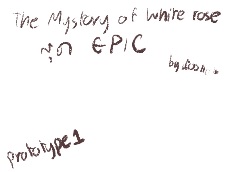 The Mystory of white rose
EPIC
by
prototype 1